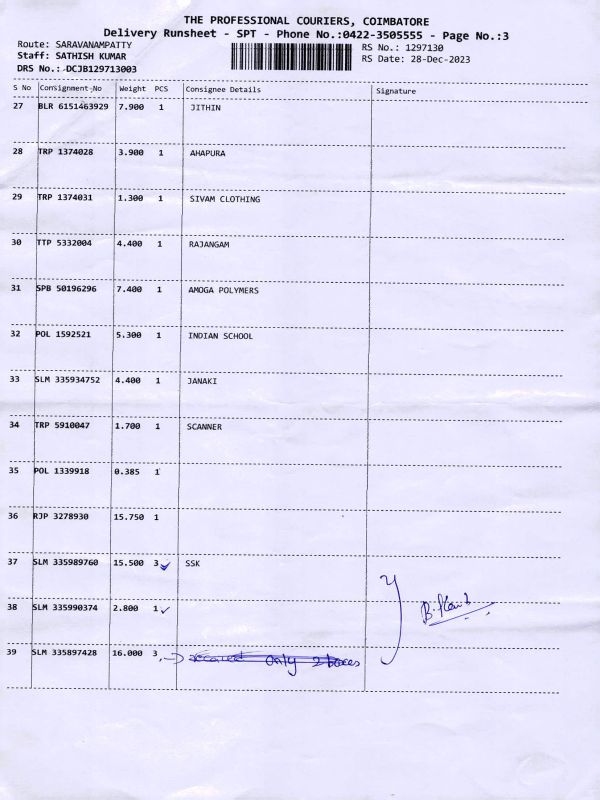 THE PROFESSIONAL COURIERS, COIMBATORE
Delivery Runsheet - SPT - Phone No.:0422-3505555 - Page No.:3
Route: SARAVANAMPATTY RS No.: 1297130
Staff: SATHISH KUMAR RS Date: 28-Dec-2023
DRS No.: DCJB129713003
S No Consignment-No Weight PCS Consignee Details Signature
27 BLR 6151463929 7.900 1 JITHIN
28 TRP 1374028 3.900 1 AHAPURA
29 TRP 1374031 1.300 1 SIVAM CLOTHING
30 TTP 5332004 4.400 1 RAJANGAM
31 SPB 50196296 7.400 1 AMOGA POLYMERS
32 POL 1592521 5.300 1 INDIAN SCHOOL
33 SLM 335934752 4.400 1 JANAKI
34 TRP 5910047 1.700 1 SCANNER
35 POL 1339918 0.385 1
36 RJP 3278930 15.750 1
37 SLM 335989760 15.500 3 SSK
38 SLM 335990374 2.800 1
39 SLM 335897428 16.000 3 only 2 boxes